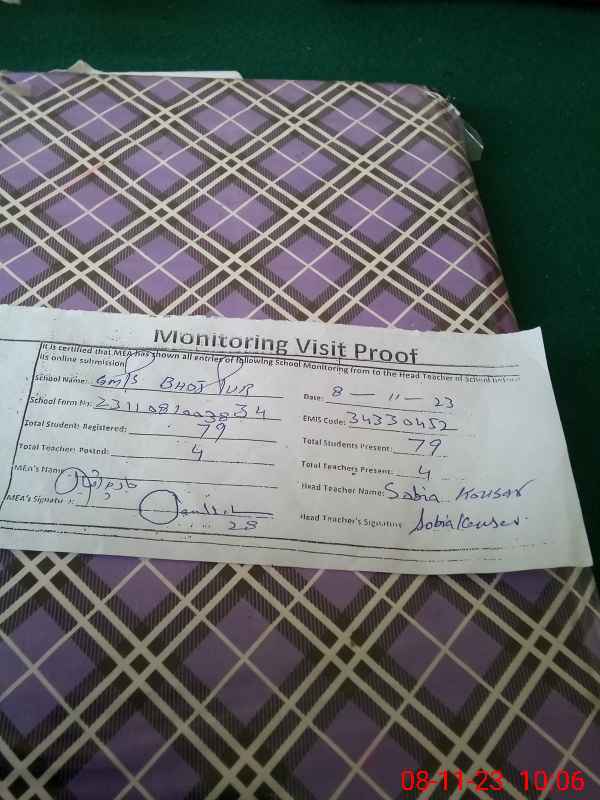 Monitoring Visit Proof
It is certified that MEA has shown all entries of following School Monitoring from to the Head Teacher of School before
its online submission
School Name: GMPS BHOJPUR Date: 8 — 11 — 23
School Form No: EMIS Code: 34330452
Total Student Registered: 79 Total Students Present: 79
Total Teacher Posted: 4 Total Teachers Present: 4
MEA's Name: Head Teacher Name: Sobia Kousar
MEA's Signature: Head Teacher's Signature Sobia Kouser
28
08-11-23 10:06